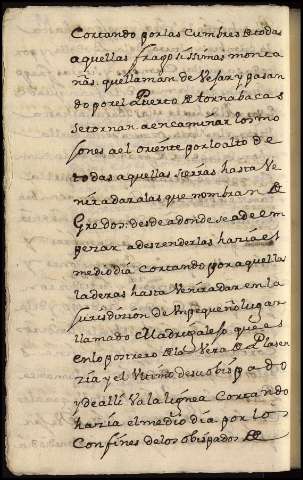 Cortando por las Cumbres de todas
aquellas fragosissimas monta
ñas, que llaman de Vejar y pasan
do por el Puerto de tornabacas
se tornan a encaminar los mo
jones a el oriente por lo alto de
todas aquellas sierras hasta Ve
nir a dar a las que nombran de
Gredos: desde adonde se a de em
pezar a deszenderlas hazia el
medio dia Cortando por aquella
laderas hasta Venir a dar en la
jurisdizion de Un pequeño lugar
llamado Madrigalejo que es
en lo postrero de la Vera de Plasen
zia y el Ultimo de su obispado
y de alli Va la lignea Cortando
hazia el medio dia por los
Confines de los obispados de